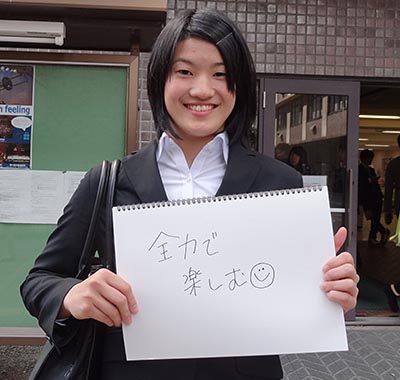 n feeling
全力で
楽しむ☺